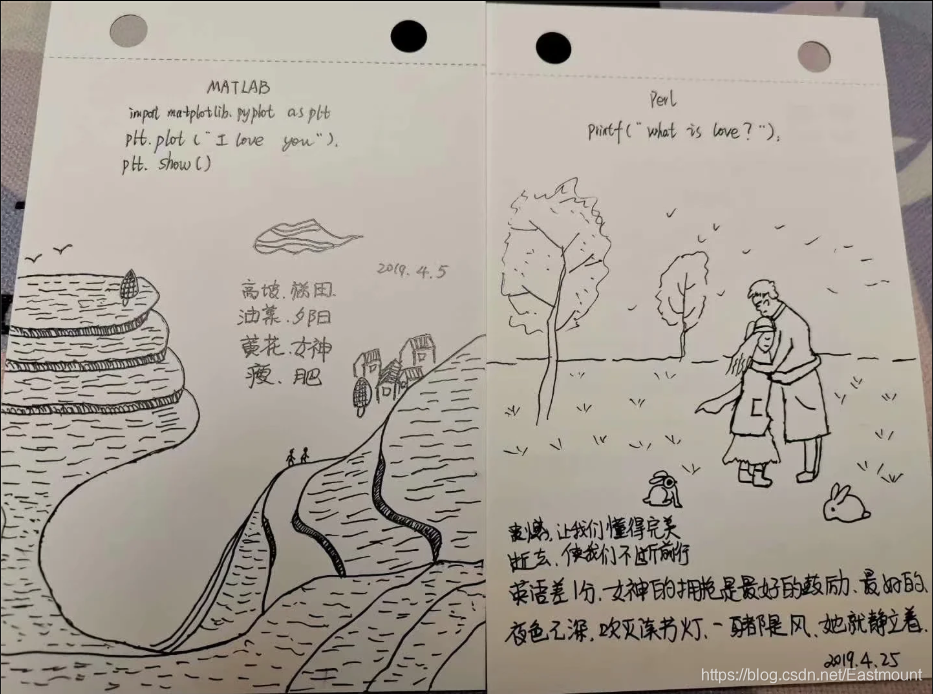 MATLAB
import matplotlib.pyplot as plt
plt.plot ("I love you"),
plt. show()
2019.4.5
高坡、田、
油菜、夕阳
黄花、女神
瘦、肥
Perl
printf("what is love?"),
让我们懂得完美
逝去、使我们不断前行
英语差1分、女神的拥抱是最好的鼓励、最好的、
夜色已深、吹灭读书灯、一都是风、她就静立着、
2019.4.25
https://blog.csdn.net/Eastmount